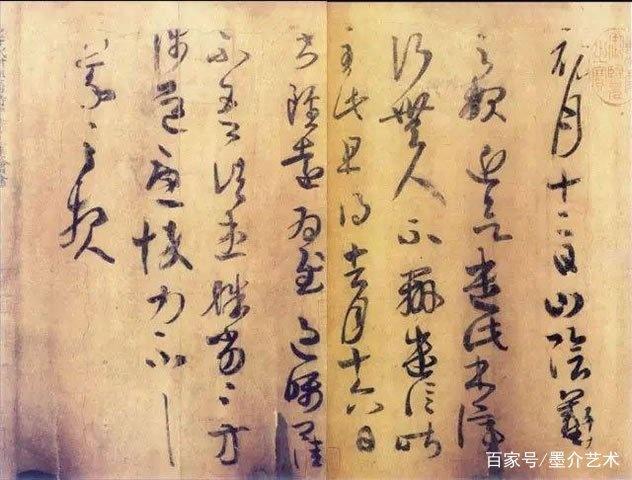 初月十二日山陰羲
之報近欲遣此書停
行無人不辦遣信昨
至此且得去月十六日
書雖遠為慰過囑
不吾諸患殊劣殊劣方
涉道憂悴力不具
羲之報
百家号/墨介艺术